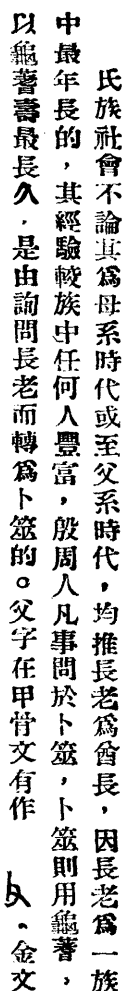 氏族社會不論其爲母系時代或至父系時代，均推長老爲酋長，因長老爲一族
中最年長的，其經驗較族中任何人豐富，殷周人凡事問於卜筮，卜筮則用龜蓍，
以龜蓍壽最長久，是由詢問長老而轉爲卜筮的。父字在甲骨文有作　。金文